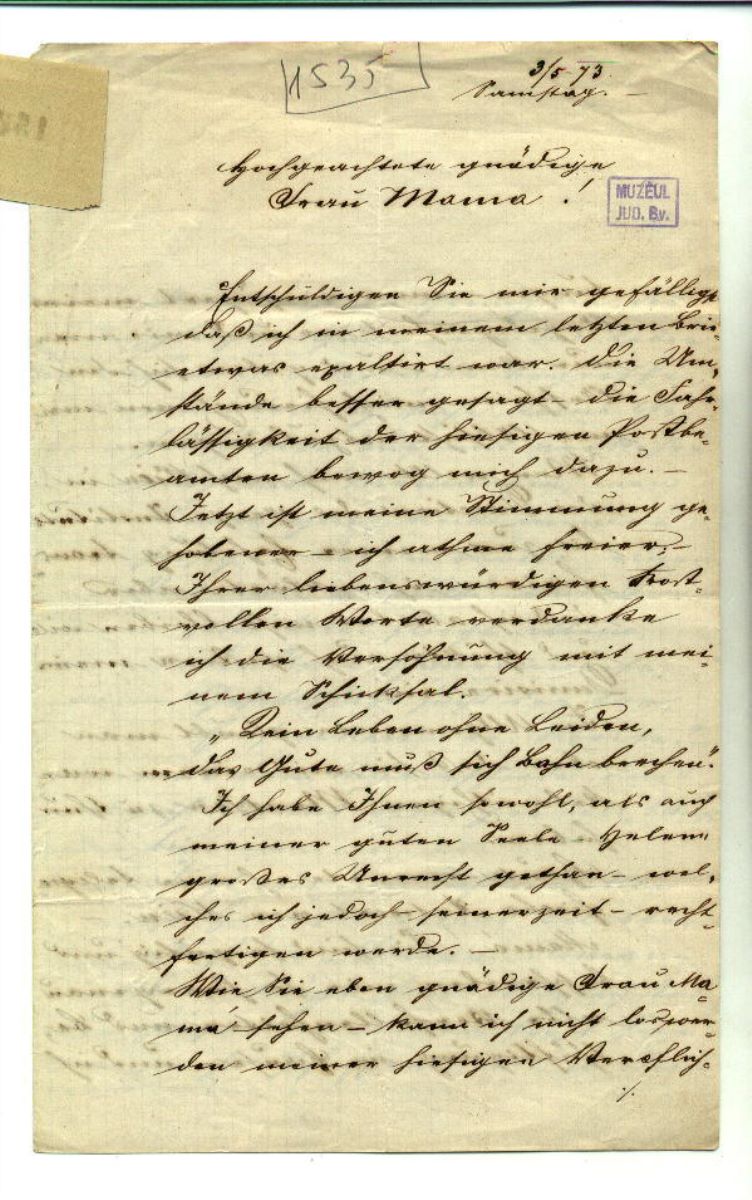 1535
3/5 73.
Samstag. –
Hochgeachtete gnädige
Frau Mama !
MUZEUL
JUD. Bv.
Entschuldigen Sie mir gefälligst
daß ich in meinem letzten Brie-
etwas exaltirt war. Die Um-
stände besser gesagt – die Fahr-
lässigkeit der hiesigen Postbe-
amten bewog mich dazu. –
Jetzt ist meine Stimmung ge-
hobener – ich athme freier, –
Ihrer liebenswürdigen trost-
vollen Worte verdanke
ich die Versöhnung mit mei-
nem Schicksal.
„Kein Leben ohne Leiden,
das Gute muß sich Bahn brechen“.
Ich habe Ihnen sowohl, als auch
meiner guten Seele – Helene
großes Unrecht gethan – wel-
ches ich jedoch – seinerzeit – recht-
fertigen werde. –
Wie Sie eben gnädige Frau Ma-
má sehen – kann ich nicht loswer-
den meiner hiesigen Verpflich-
./.